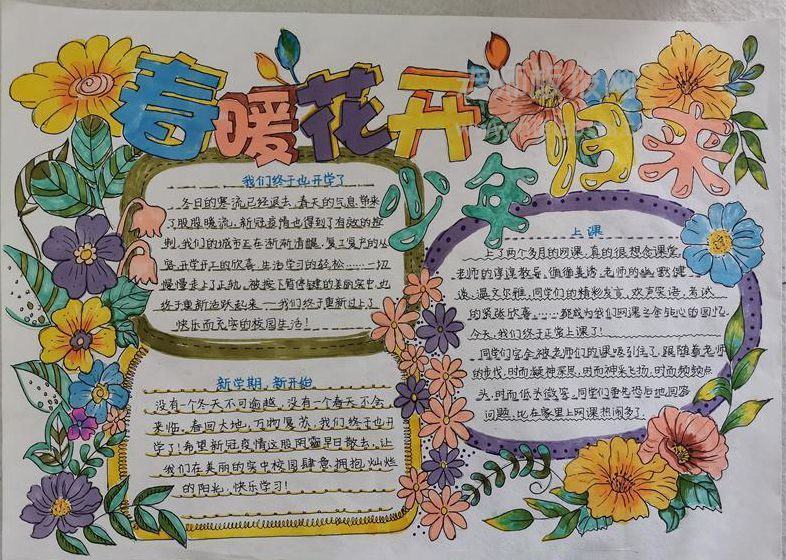 春暖花开
少年归来
我们终于也开学了
冬日的寒流已经退去,春天的气息带来
了股股暖流,新冠疫情也得到了有效的控
制,我们的城市正在渐渐清醒,复工复产的
开学开工的欣喜,生活学习的轻松……一切
慢慢走上了正轨。被按下暂停键的美丽实中也
终于重新活跃起来——我们终于重新过上了
快乐而充实的校园生活!
新学期,新开始
没有一个冬天不可逾越,没有一个春天不会
来临。春回大地,万物复苏,我们终于也开
学了!希望新冠疫情这股阴霾早日散去,让
我们在美丽的实中校园肆意拥抱灿烂
的阳光,快乐学习!
上课
上了两个多月的网课,真的很想念课堂。
老师的谆谆教导,循循善诱,老师的幽默健
谈,温文尔雅,同学们的精彩发言,欢声笑语,考试
的紧张欣喜……都成为我们网课之余暖心的回忆。
今天,我们终于正常上课了!
同学们完全被老师们的课吸引住了,跟随着老师
的步伐,时而凝神深思,时而神采飞扬,时而频频点
头,时而低头微笑。同学们争先恐后地回答
问题,比在家里上网课热闹多了。